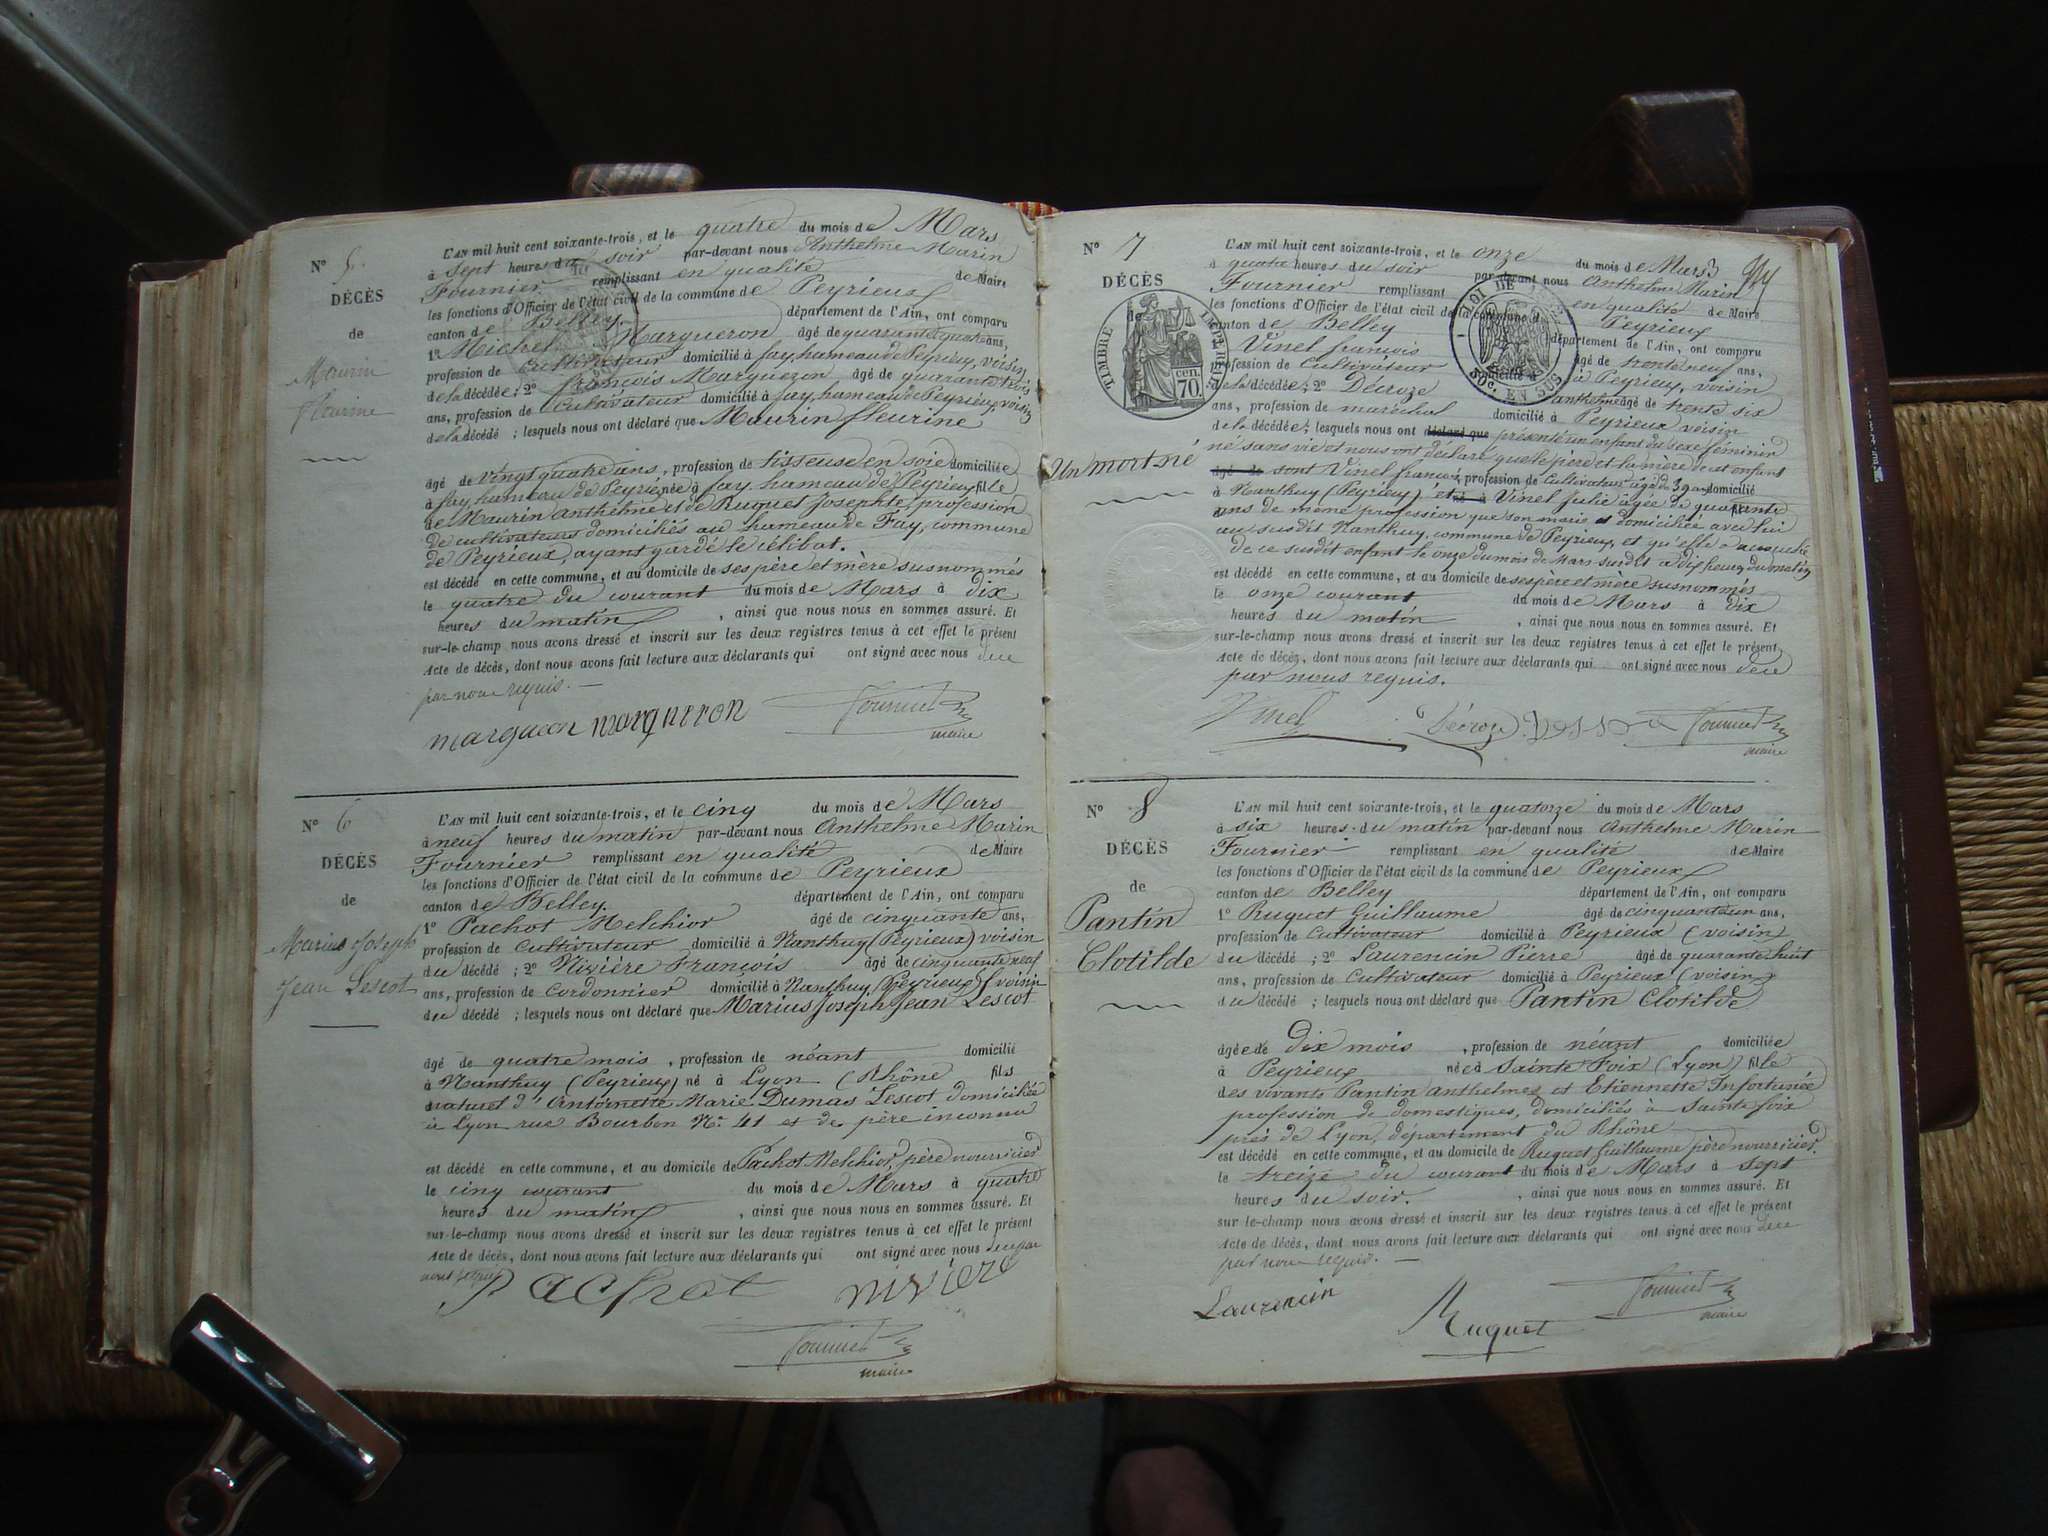 N° 5
DÉCÈS
de
Maurin
fleurine
L'AN mil huit cent soixante-trois, et le quatre du mois de Mars
à sept heures du soir par-devant nous Anthelme Marin
Fournier remplissant en qualité de Maire
les fonctions d'Officier de l'état civil de la commune de Peyrieux
canton de Belley. département de l'Ain, ont comparu
1° Michel Margueron âgé de quarante quatre ans,
profession de cultivateur domicilié à fay, hameau de Peyrieux, voisin
de la décédée; 2° françois Margueron âgé de quarante trois
ans, profession de Cultivateur domicilié à fay, hameau de Peyrieux, voisin
de la décédé ; lesquels nous ont déclaré que Maurin fleurine
âgé de vingt quatre ans, profession de tisseuse en soie domiciliée
à fay, hameau de Peyrieux née à fay, hameau de Peyrieux fille
de Maurin Anthelme et de Ruquet Josephte, profession
de cultivateurs domiciliés au hameau de Fay, commune
de Peyrieux, ayant gardé le célibat.
est décédé en cette commune, et au domicile de ses père et mère susnommés
le quatre du courant du mois de Mars à dix
heures du matin , ainsi que nous nous en sommes assuré. Et
sur-le-champ nous avons dressé et inscrit sur les deux registres tenus à cet effet le présent
Acte de décès, dont nous avons fait lecture aux déclarants qui ont signé avec nous dece
par nous requis. —
margueron margueron Fournier
maire
N° 6
DÉCÈS
de
Marius Joseph
Jean Lescot
L'AN mil huit cent soixante-trois, et le cinq du mois de Mars
à neuf heures du matin par-devant nous Anthelme Marin
Fournier remplissant en qualité de Maire
les fonctions d'Officier de l'état civil de la commune de Peyrieux
canton de Belley. département de l'Ain, ont comparu
1° Pachot Melchior âgé de cinquante ans,
profession de Cultivateur domicilié à Nanthuy (Peyrieux) voisin
du décédé ; 2° Nivière François âgé de cinquante neuf
ans, profession de Cordonnier domicilié à Nanthuy (Peyrieux) (voisin
du décédé ; lesquels nous ont déclaré que Marius Joseph Jean Lescot
âgé de quatre mois , profession de néant domicilié
à Nanthuy (Peyrieux) né à Lyon (Rhône fils
naturel d'Antoinette Marie Dumas Lescot domiciliée
à Lyon rue Bourbon N° 41 et de père inconnu
est décédé en cette commune, et au domicile de Pachot Melchior, père nourricier
le cinq courant du mois de Mars à quatre
heures du matin , ainsi que nous nous en sommes assuré. Et
sur-le-champ nous avons dressé et inscrit sur les deux registres tenus à cet effet le présent
Acte de décès, dont nous avons fait lecture aux déclarants qui ont signé avec nous dece par
nous requis
Pachot nivière
Fournier
maire
N° 7
DÉCÈS
de
TIMBRE IMPÉRIAL
70 cen.
LOI DE
50c. EN SUS
Un mort né
L'AN mil huit cent soixante-trois, et le onze du mois de Mars
à quatre heures du soir par-devant nous Anthelme Marin
Fournier remplissant en qualité de Maire
les fonctions d'Officier de l'état civil de la commune de Peyrieux
canton de Belley département de l'Ain, ont comparu
Vinel françois âgé de trente neuf ans,
profession de Cultivateur domicilié à Peyrieux, voisin
de la décédée; 2° Décroze anthelme âgé de trente six
ans, profession de maréchal domicilié à Peyrieux voisin
de la décédée; lesquels nous ont déclaré que présenté un enfant du sexe féminin
né sans vie et nous ont déclaré que le père et la mère de cet enfant
âgé de sont Vinel françois, profession de Cultivateur âgé de 39 ans domicilié
à Nanthuy (Peyrieux) et né à Vinel Julie âgée de quarante
ans de même profession que son mari et domiciliée avec lui
au susdit Nanthuy, commune de Peyrieux, et qu'elle a accouchée
de ce susdit enfant le onze du mois de Mars susdit à dix heures du matin
est décédé en cette commune, et au domicile de ses père et mère susnommés
le onze courant du mois de Mars à dix
heures du matin , ainsi que nous nous en sommes assuré. Et
sur-le-champ nous avons dressé et inscrit sur les deux registres tenus à cet effet le présent
Acte de décès, dont nous avons fait lecture aux déclarants qui ont signé avec nous dece
par nous requis.
Vinel Décroze Fournier
maire
N° 8
DÉCÈS
de
Pantin
Clotilde
L'AN mil huit cent soixante-trois, et le quatorze du mois de Mars
à six heures du matin par-devant nous Anthelme Marin
Fournier remplissant en qualité de Maire
les fonctions d'Officier de l'état civil de la commune de Peyrieux
canton de Belley département de l'Ain, ont comparu
1° Ruquet Guillaume âgé de cinquante un ans,
profession de Cultivateur domicilié à Peyrieux (voisin)
du décédé ; 2° Laurencin Pierre âgé de quarante huit
ans, profession de Cultivateur domicilié à Peyrieux (voisin)
du décédé ; lesquels nous ont déclaré que Pantin Clotilde
âgée de Dix mois , profession de néant domiciliée
à Peyrieux née à Sainte Foix (Lyon) fille
des vivants Pantin Anthelme et Etiennette Infortunée
profession de domestiques, domiciliés à Sainte foix
près de Lyon, département du Rhône
est décédé en cette commune, et au domicile de Ruquet Guillaume père nourricier.
le treize du courant du mois de Mars à sept
heures du soir. , ainsi que nous nous en sommes assuré. Et
sur-le-champ nous avons dressé et inscrit sur les deux registres tenus à cet effet le présent
Acte de décès, dont nous avons fait lecture aux déclarants qui ont signé avec nous dece
par nous requis. —
Laurencin Ruquet Fournier
maire